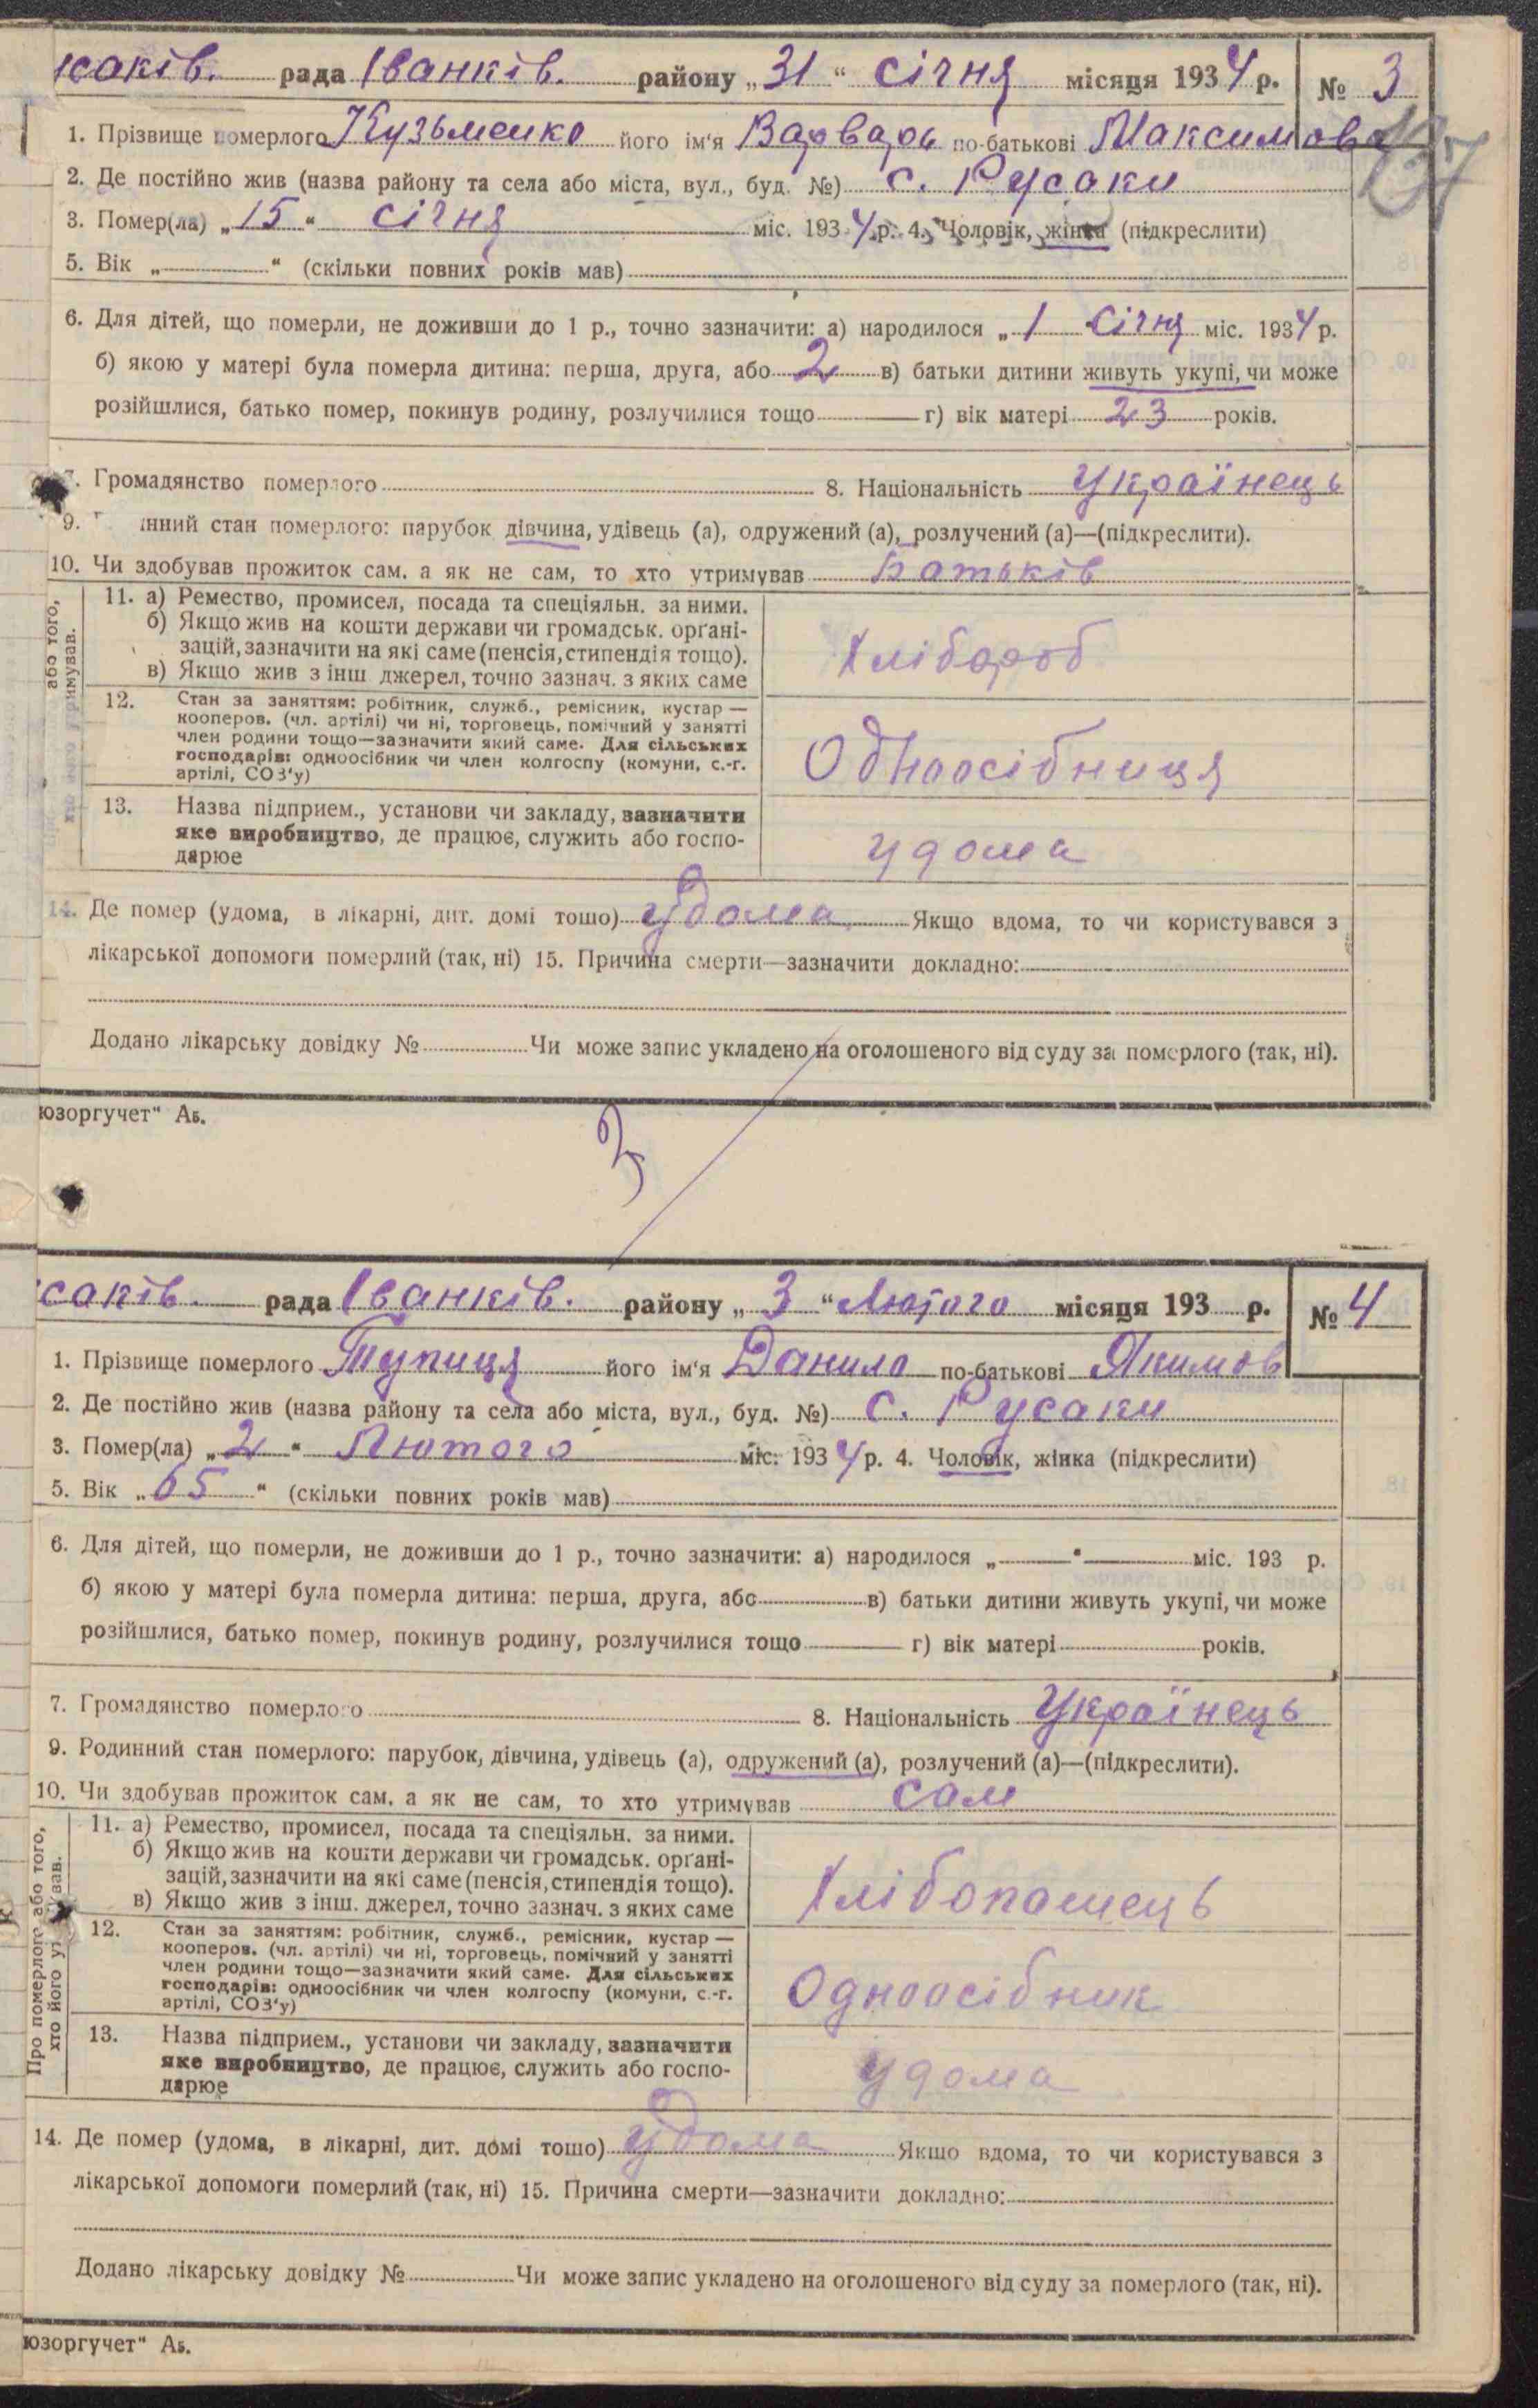 саків. рада Іванків. району „31“ січня місяця 1934 р. № 3
137
1. Прізвище померлого Кузьменко його ім'я Варварь по-батькові Максимова
2. Де постійно жив (назва району та села або міста, вул., буд. №) с. Русаки
3. Помер(ла) „15“ січня міс. 1934 р. 4. Чоловік, жінка (підкреслити)
5. Вік „ “ (скільки повних років мав)
6. Для дітей, що померли, не доживши до 1 р., точно зазначити: а) народилося „1 Січня міс. 1934 р.
б) якою у матері була померла дитина: перша, друга, або 2 в) батьки дитини живуть укупі, чи може
розійшлися, батько помер, покинув родину, розлучилися тощо г) вік матері 23 років.
7. Громадянство померлого 8. Національність Українець
9. нний стан померлого: парубок дівчина, удівець (а), одружений (а), розлучений (а)—(підкреслити).
10. Чи здобував прожиток сам, а як не сам, то хто утримував Батьків
або того,
римував.
11. а) Ремество, промисел, посада та спеціяльн. за ними.
б) Якщо жив на кошти держави чи громадськ. орґані-
зацій, зазначити на які саме (пенсія, стипендія тощо).
в) Якщо жив з інш джерел, точно зазнач. з яких саме
Хлібороб
12. Стан за заняттям: робітник, служб., ремісник, кустар —
кооперов. (чл. артілі) чи ні, торговець, помічний у занятті
член родини тощо—зазначити який саме. Для сільських
господарів: одноосібник чи член колгоспу (комуни, с.-г.
артілі, СОЗ'у)
Одноосібниця
13. Назва підприєм., установи чи закладу, зазначити
яке виробництво, де працює, служить або госпо-
дарює
удома
14. Де помер (удома, в лікарні, дит. домі тошо) удома Якщо вдома, то чи користувався з
лікарської допомоги померлий (так, ні) 15. Причина смерти—зазначити докладно:
Додано лікарську довідку № Чи може запис укладено на оголошеного від суду за померлого (так, ні).
юзоргучет“ Аб.
саків. рада Іванків. району „3“ Лютого місяця 193 р. № 4
1. Прізвище померлого Тупиця його ім'я Данило по-батькові Якимов
2. Де постійно жив (назва району та села або міста, вул., буд. №) с. Русаки
3. Помер(ла) „2“ Лютого міс. 1934 р. 4. Чоловік, жінка (підкреслити)
5. Вік „65“ (скільки повних років мав)
6. Для дітей, що померли, не доживши до 1 р., точно зазначити: а) народилося „ “ міс. 193 р.
б) якою у матері була померла дитина: перша, друга, або в) батьки дитини живуть укупі, чи може
розійшлися, батько помер, покинув родину, розлучилися тощо г) вік матері років.
7. Громадянство померлого 8. Національність Українець
9. Родинний стан померлого: парубок, дівчина, удівець (а), одружений (а), розлучений (а)—(підкреслити).
10. Чи здобував прожиток сам, а як не сам, то хто утримував сам
Про померлого або того,
хто його ував.
11. а) Ремество, промисел, посада та спеціяльн. за ними.
б) Якщо жив на кошти держави чи громадськ. орґані-
зацій, зазначити на які саме (пенсія, стипендія тощо).
в) Якщо жив з інш. джерел, точно зазнач. з яких саме
Хлібопашець
12. Стан за заняттям: робітник, служб., ремісник, кустар —
кооперов. (чл. артілі) чи ні, торговець, помічний у занятті
член родини тощо—зазначити який саме. Для сільських
господарів: одноосібник чи член колгоспу (комуни, с.-г.
артілі, СОЗ'у)
Одноосібник
13. Назва підприєм., установи чи закладу, зазначити
яке виробництво, де працює, служить або госпо-
дарює
удома
14. Де помер (удома, в лікарні, дит. домі тошо) удома Якщо вдома, то чи користувався з
лікарської допомоги померлий (так, ні) 15. Причина смерти—зазначити докладно:
Додано лікарську довідку № Чи може запис укладено на оголошеного від суду за померлого (так, ні).
юзоргучет“ Аб.